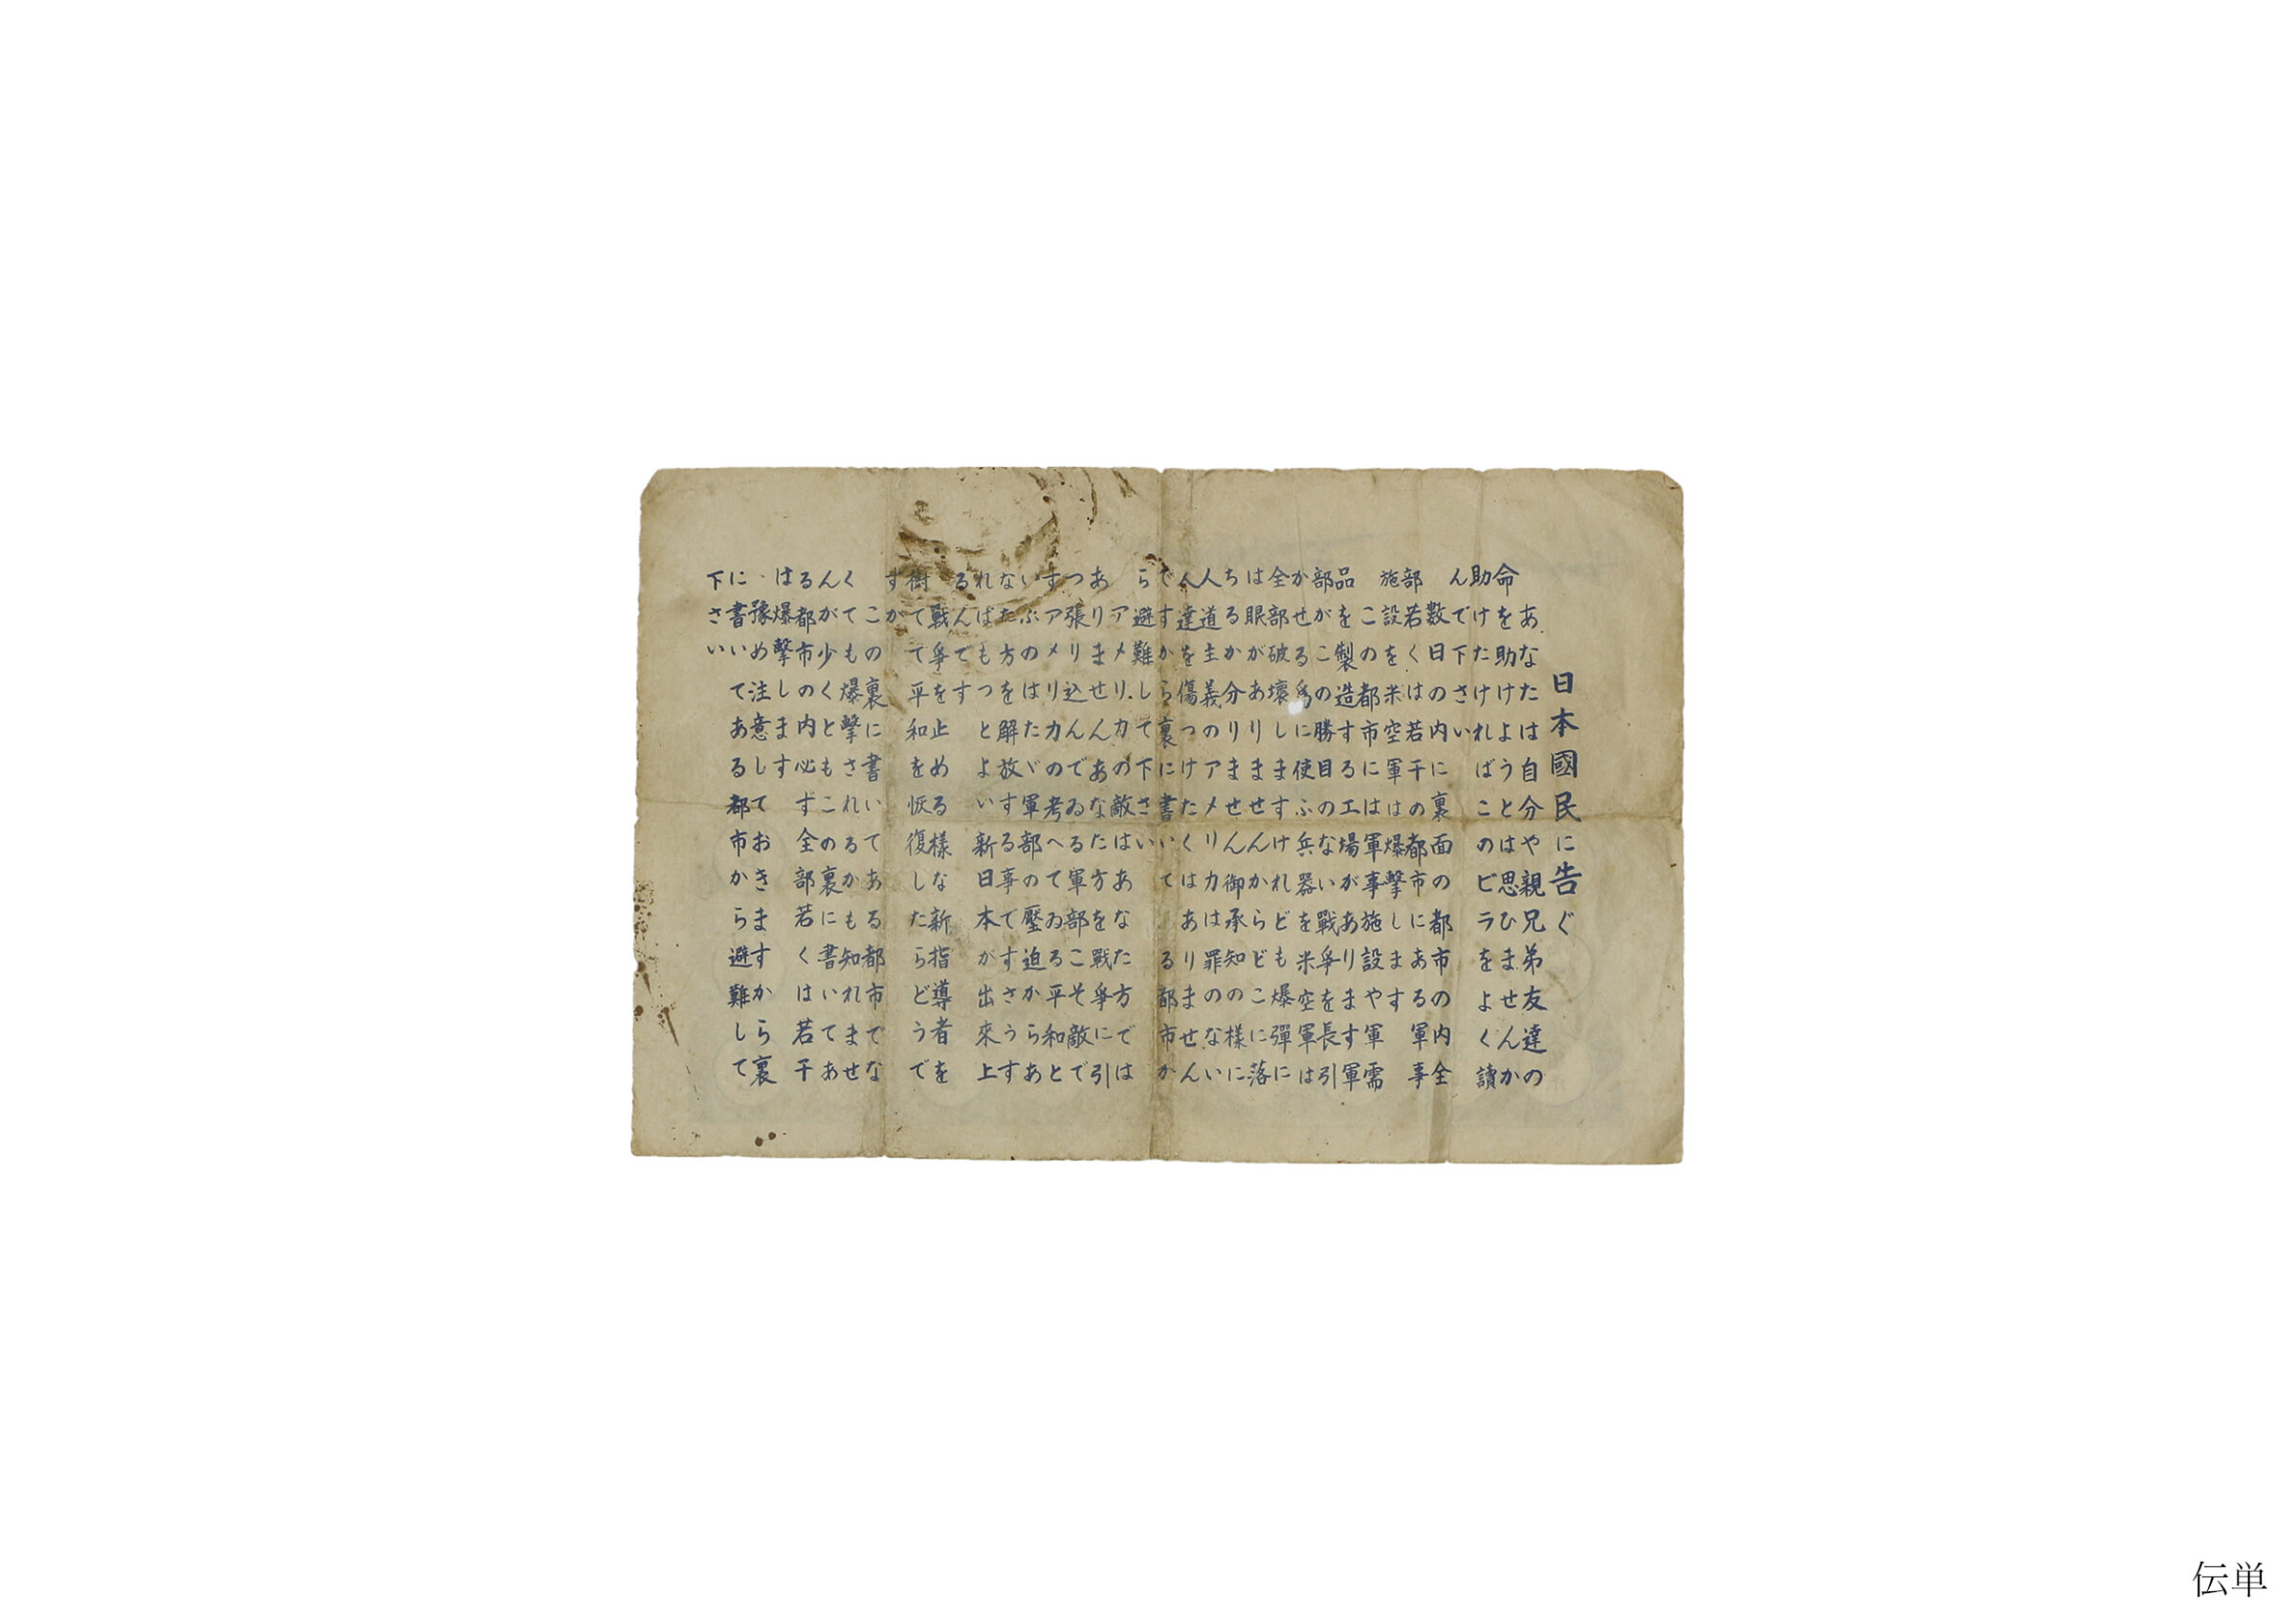 日本國民に告ぐ
あなたは自分や親兄弟友達の
命を助けようとは思ひませんか
助けたければこのビラをよく讀
んで下さい
數日の内に裏面の都市の内全
部若くは若干の都市にある軍事
施設を米空軍は爆撃します
この都市には軍事施設や軍需
品を製造する工場があります軍
部がこの勝目のない戰爭を長引
かせる為に使ふ兵器を米空軍は
全部破壞しますけれども爆彈に
は眼がありませんからどこに落
ちるか分りません御承知の様に
人道主義のアメリカは罪のない
人達を傷つけたくはありません
ですから裏に書いてある都市か
ら避難して下さい
アメリカの敵はあなた方では
ありませんあなた方を戰爭に引
つ張り込んでゐる軍部こそ敵で
すアメリカの考へてゐる平和と
いふのはたゞ軍部の壓迫からあ
なた方を解放する事ですさうす
ればもつとよい新日本が出來上
るんです
戰爭を止める樣な新指導者を
樹てて平和を恢復したらどうで
すか
この裏に書いてある都市でな
くても爆撃されるかも知れませ
んが少くともこの裏に書いてあ
る都市の内必ず全部若くは若干
は爆撃します
豫め注意しておきますから裏
に書いてある都市から避難して
下さい
伝単